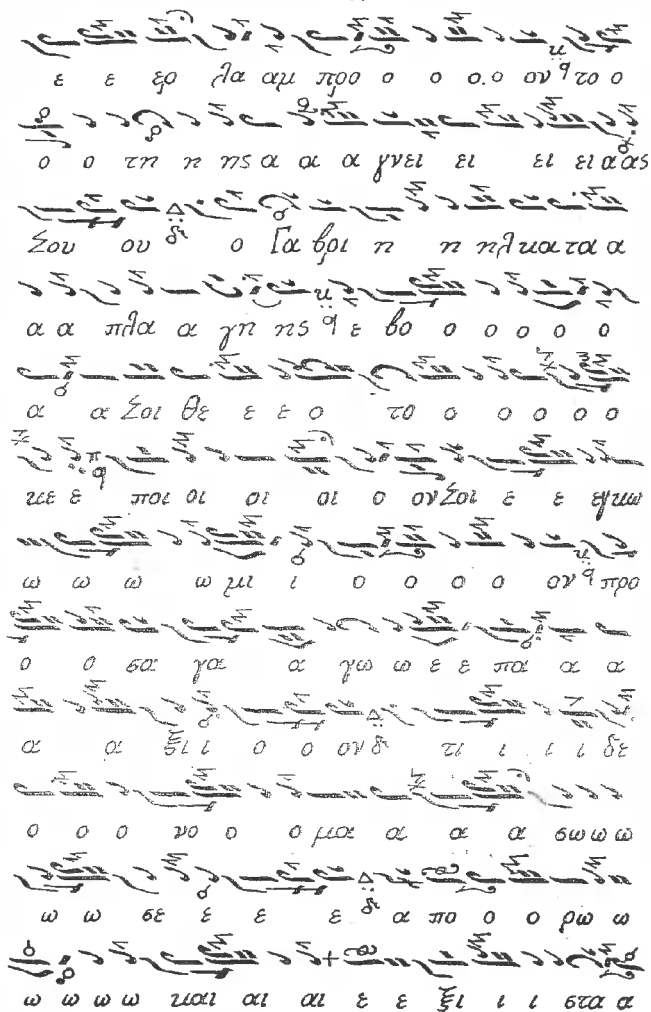 ε ε ερ λα αμ προ ο ο ο.ο ον το ο
ο ο τη η ης α α α γνει ει ει ει α ας
Σου ου ο Γα βρι η η ηλ κα τα α
α α πλα α γη ης ε βο ο ο ο ο ο
α α Σοι Θε ε ε ο το ο ο ο ο ο
κε ε ποι οι οι οι ο ον Σοι ε ε εγκω
ω ω ω ω μι ι ο ο ο ο ον προ
ο ο σα γα α γω ω ε ε πα α α
α α ξι ι ο ο ον τι ι ι ι δε
ο ο ο νο ο ο μα α α α σω ω ω
ω ω σε ε ε ε α πο ο ο ρω ω
ω ω ω ω και αι αι ε ε ξι ι ι στα α